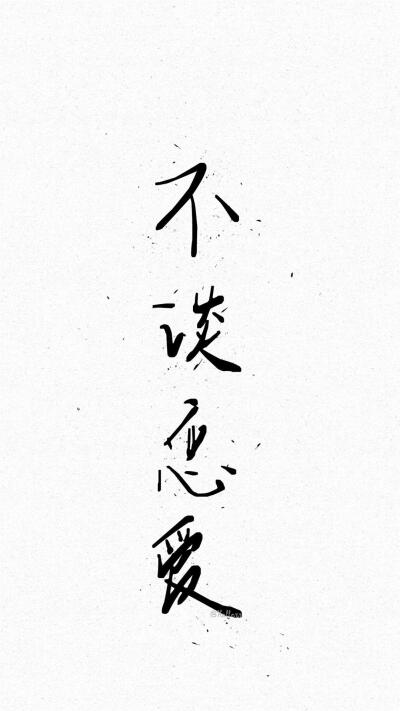 不谈恋爱